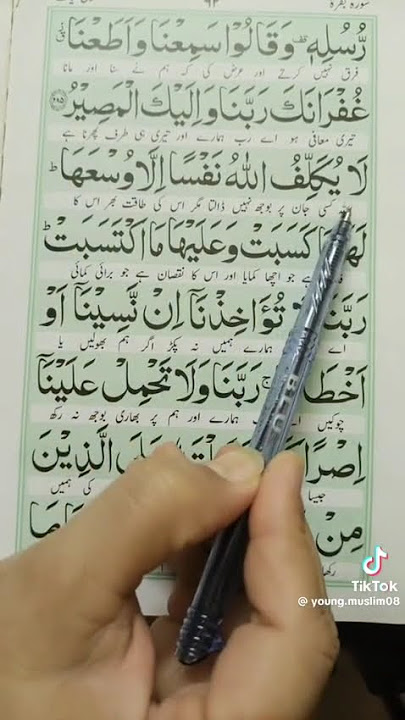 رُّسُلِهٖ وَقَالُوْا سَمِعْنَا وَاَطَعْنَا
فرق نہیں کرتے اور عرض کی کہ ہم نے سنا اور مانا
غُفْرَانَكَ رَبَّنَا وَاِلَيْكَ الْمَصِيْرُ ٢٨٥
تیری معافی ہو اے رب ہمارے اور تیری ہی طرف پھرنا ہے
لَا يُكَلِّفُ اللّٰهُ نَفْسًا اِلَّا وُسْعَهَا ؕ
کسی جان پر بوجھ نہیں ڈالتا مگر اس کی طاقت بھر اس کا
كَسَبَتْ وَعَلَيْهَا مَا اكْتَسَبَتْ ؕ
ہے جو اچھا کمایا اور اس کا نقصان ہے جو برائی کمائی
رَبَّنَا تُؤَاخِذْنَاۤ اِنْ نَّسِيْنَاۤ اَوْ
اے ہمارے ہمیں نہ پکڑ اگر ہم بھولیں یا
رَبَّنَا وَلَا تَحْمِلْ عَلَيْنَاۤ
چوکیں ہمارے اور ہم پر بھاری بوجھ نہ رکھ
اِصْرًا الَّذِيْنَ
جیسا کی ہمیں
مِنْ
TikTok
@ young.muslim08